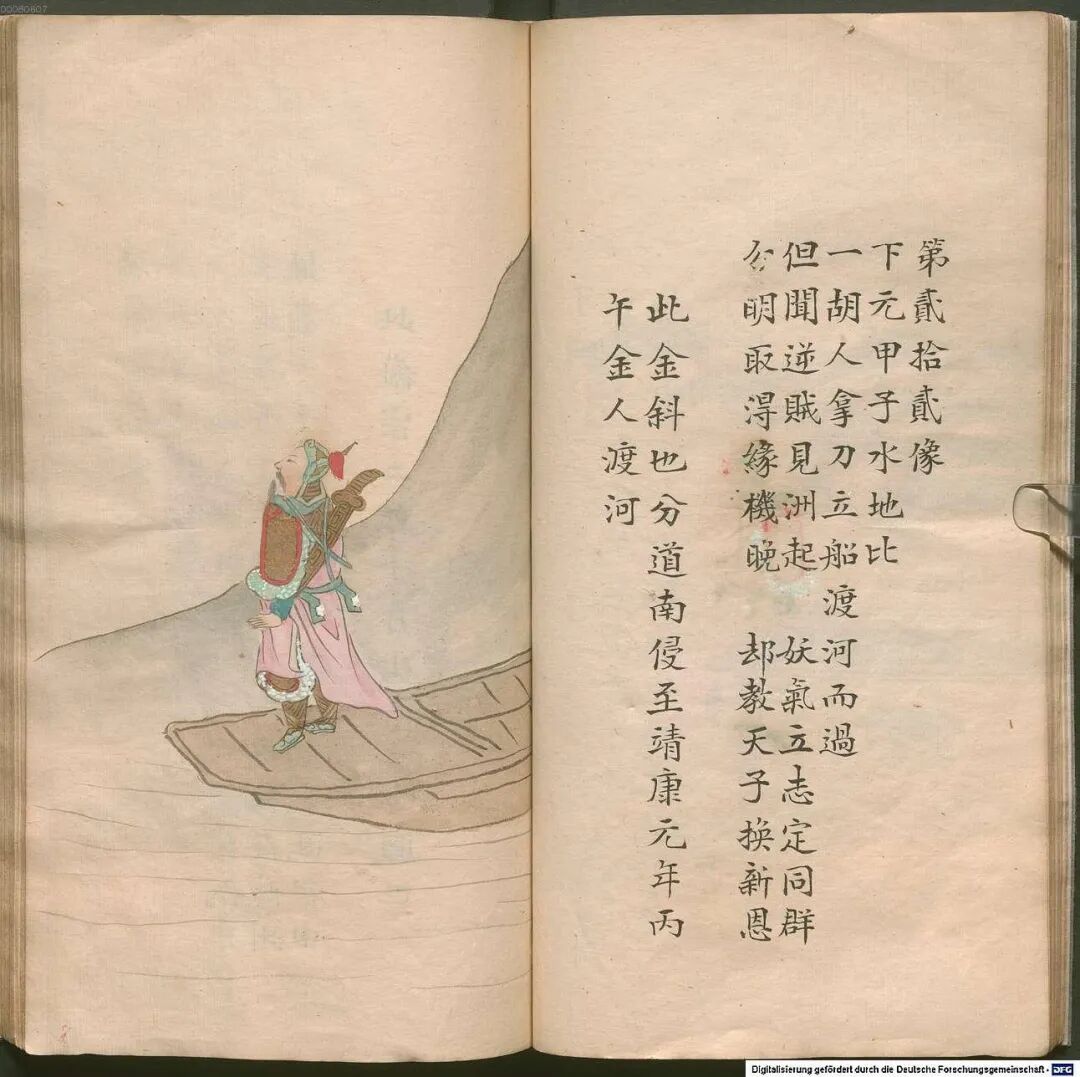 第貳拾貳像
下元甲子水地比
一胡人拿刀立船渡河而過
但聞逆賊見洲起 妖氣立志定同群
分明取得緣機晚 却教天子換新恩
此金斜也分道南侵至靖康元年丙
午金人渡河
00060607
Digitalisierung gefördert durch die Deutsche Forschungsgemeinschaft - DFG